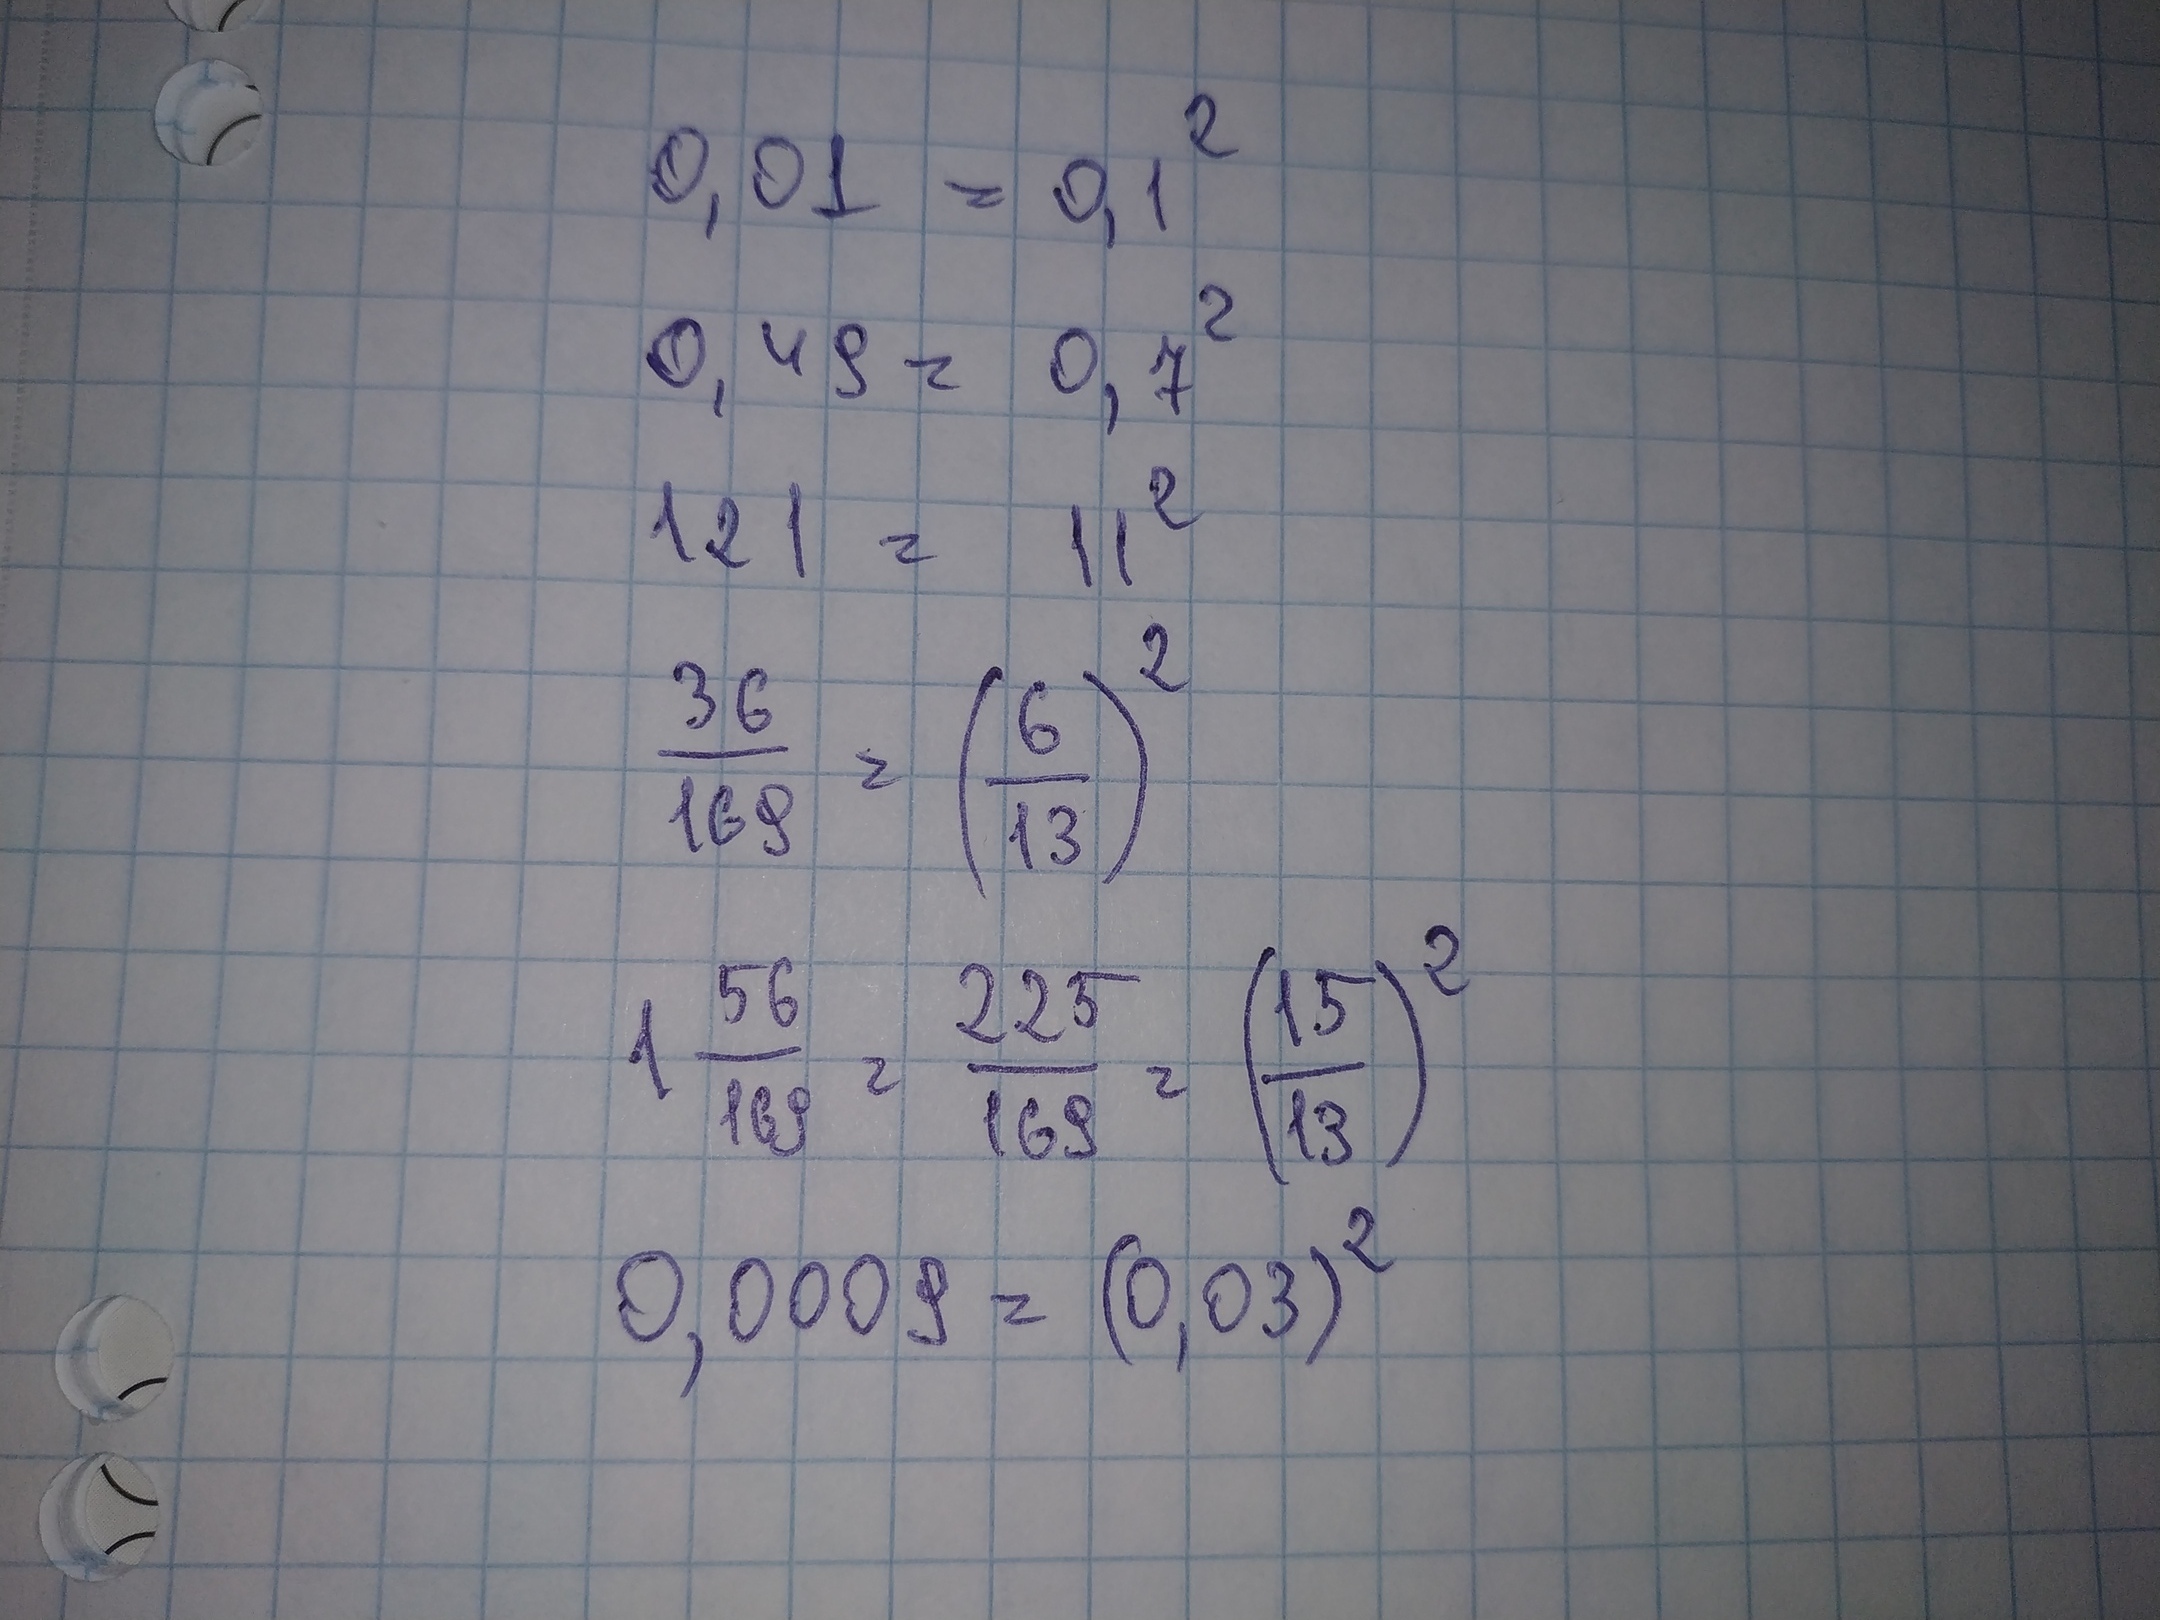 0,01 = 0,1²
0,49 = 0,7²
121 = 11²
36/169 = (6/13)²
1 56/169 = 225/169 = (15/13)²
0,0009 = (0,03)²